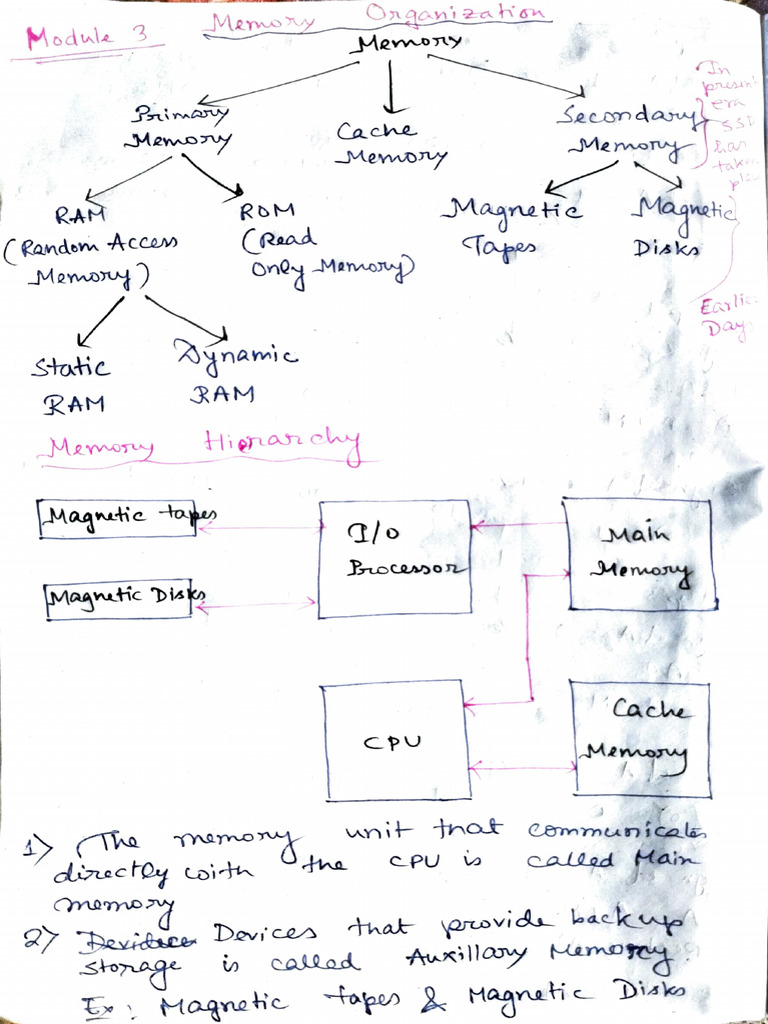 Module 3
Memory Organization
Memory
Primary Memory
Cache Memory
Secondary Memory
In present era SSD has taken
RAM (Random Access Memory)
ROM (Read Only Memory)
Magnetic Tapes
Magnetic Disks
Static RAM
Dynamic RAM
Memory Hierarchy
Magnetic tapes
I/O Processor
Main Memory
Magnetic Disks
CPU
Cache Memory
1) The memory unit that communicates
directly with the CPU is called Main
memory
2) Devices that provide backup
storage is called Auxillary Memory.
Ex: Magnetic tapes & Magnetic Disks